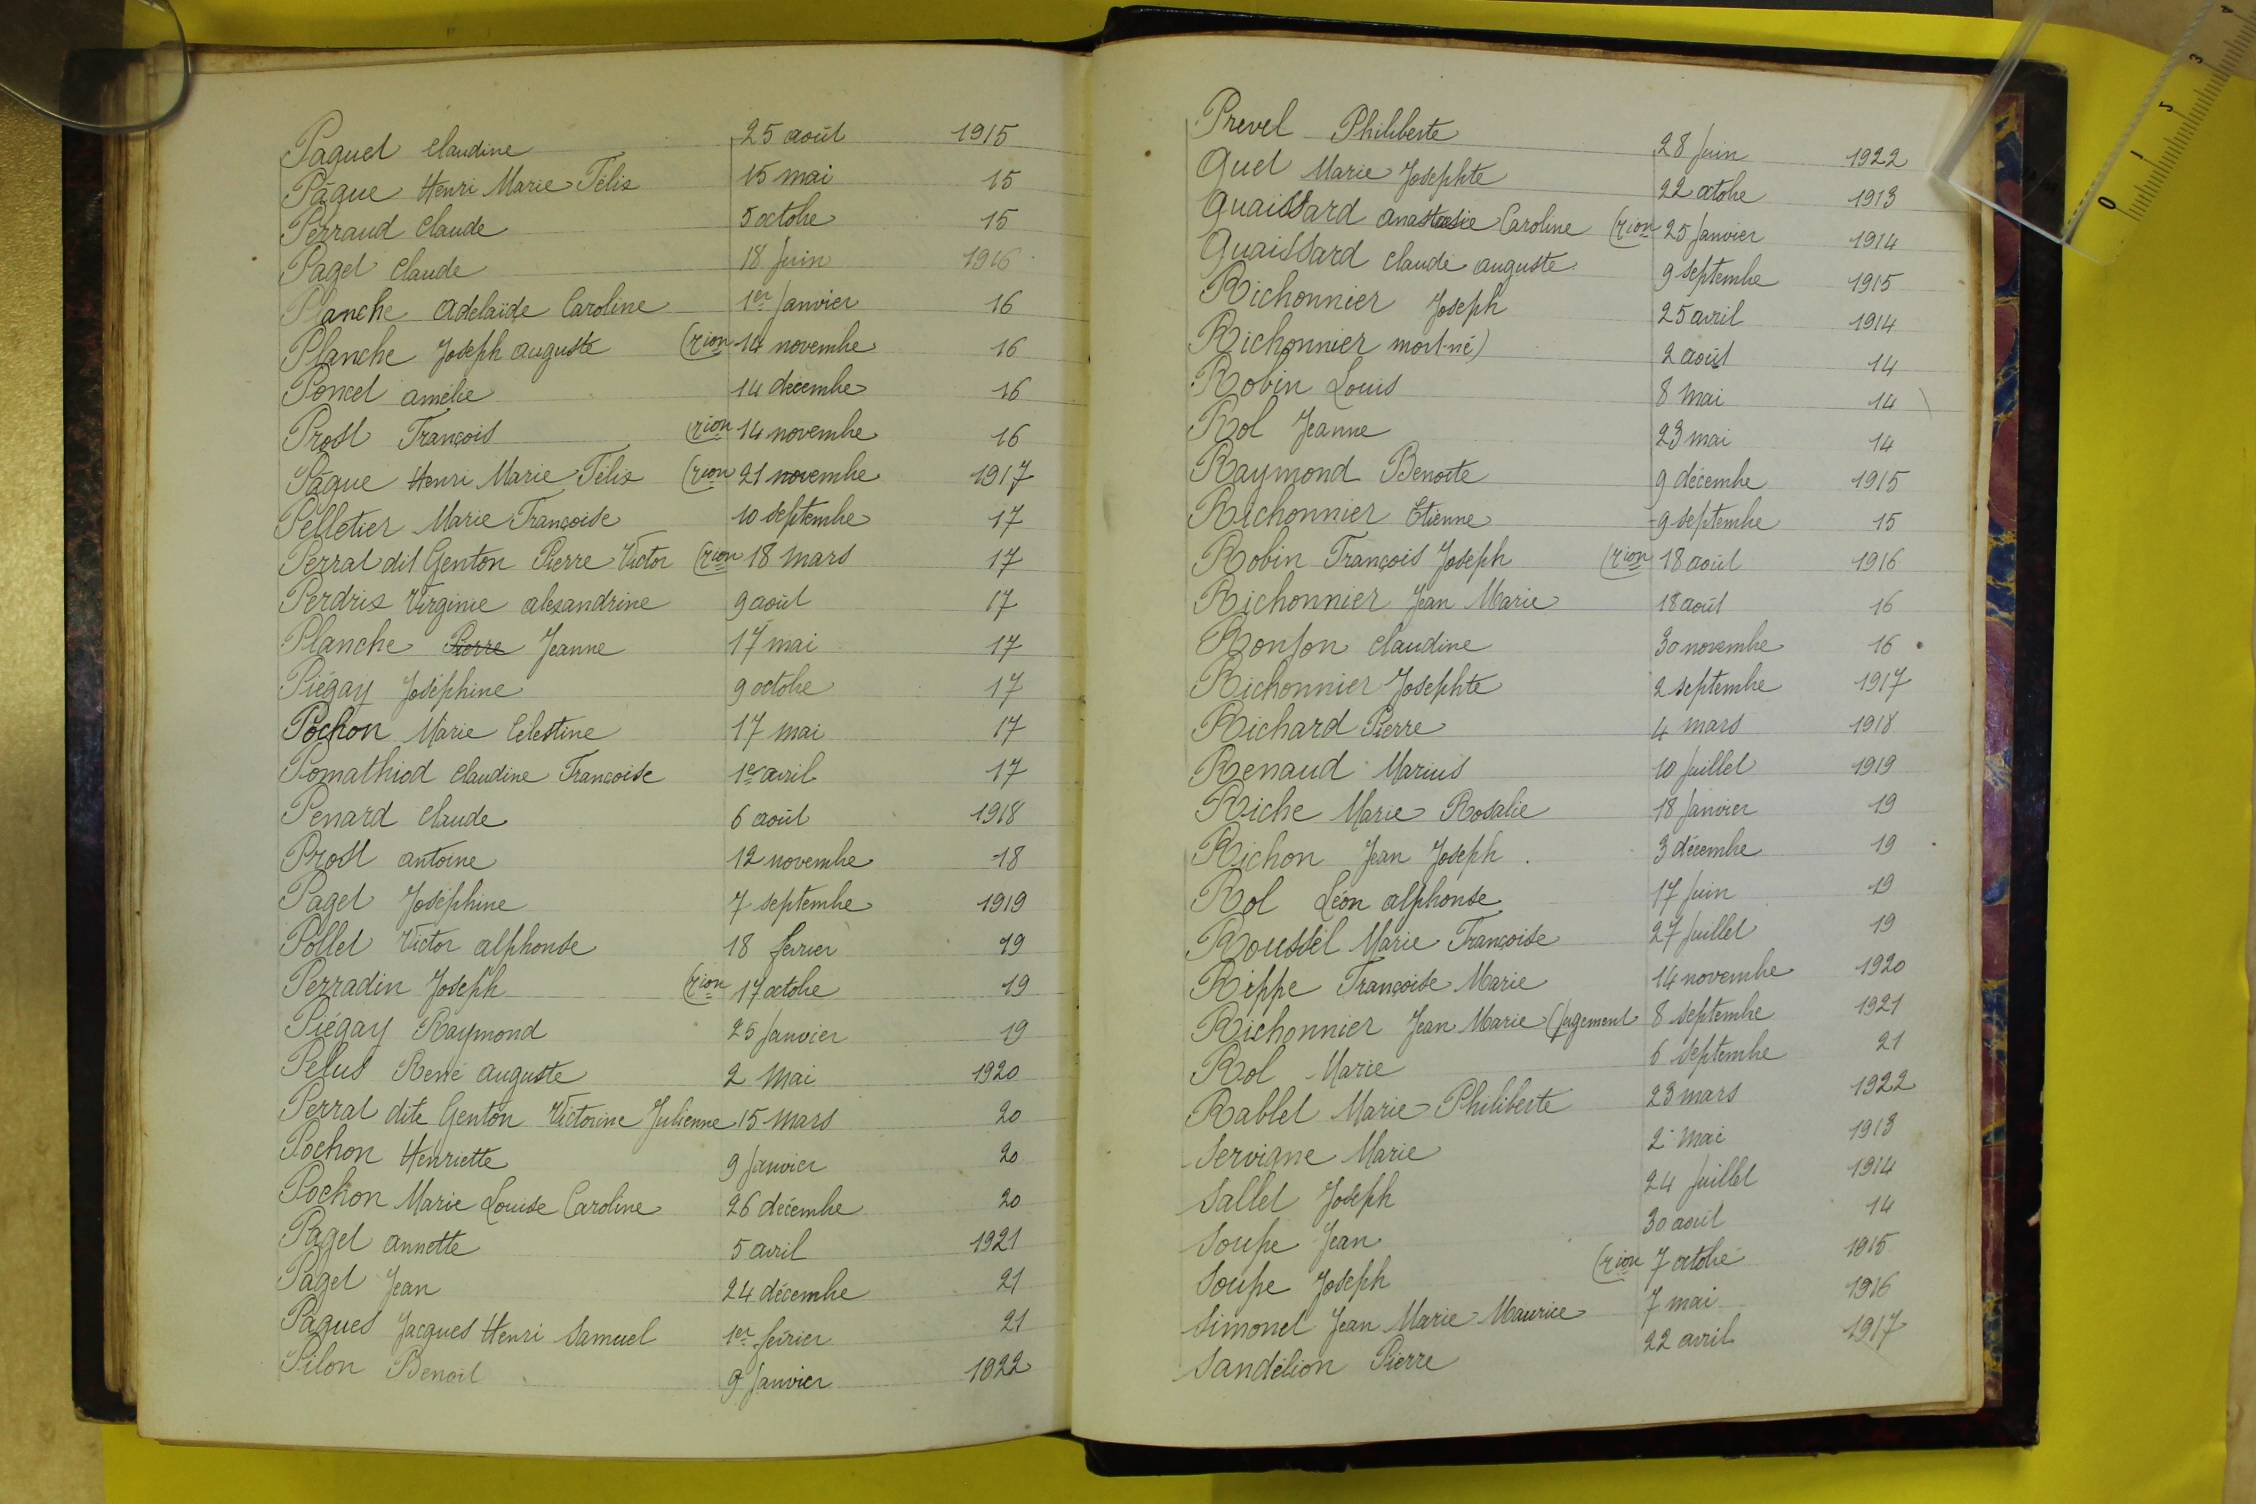 Paquet Claudine 25 août 1915
Pâque Henri Marie Félix 15 mai 15
Perraud Claude 5 octobre 15
Paget Claude 18 Juin 1916
Planche Adelaïde Caroline 1er Janvier 16
Planche Joseph auguste (rion 14 novembre 16
Poncet amélie 14 décembre 16
Prost François (rion 14 novembre 16
Pâque Henri Marie Félix (rion 21 novembre 1917
Pelletier Marie Françoise 10 septembre 17
Perrat dit Genton Pierre Victor (rion 18 mars 17
Perdrix Virginie alexandrine 9 août 17
Planche Pierre Jeanne 17 mai 17
Piégay Joséphine 9 octobre 17
Pochon Marie Célestine 17 mai 17
Pomathiod Claudine Françoise 1er avril 17
Penard Claude 6 août 1918
Prost antoine 12 novembre 18
Paget Joséphine 7 septembre 1919
Pollet Victor alphonse 18 février 19
Perradin Joseph (rion 17 octobre 19
Piégay Raymond 25 Janvier 19
Pelus René auguste 2 Mai 1920
Perrat dite Genton Victorine Julienne 15 Mars 20
Pochon Henriette 9 Janvier 20
Pochon Marie Louise Caroline 26 décembre 20
Paget annette 5 avril 1921
Paget Jean 24 décembre 21
Pâques Jacques Henri Samuel 1er février 21
Pilon Benoît 9 Janvier 1922
Prevel Philiberte 28 Juin 1922
Quet Marie Josephte 22 octobre 1913
Quaissard anastasie Caroline (rion 25 Janvier 1914
Quaissard Claude auguste 9 septembre 1915
Richonnier Joseph 25 avril 1914
Richonnier mort-né) 2 août 14
Robin Louis 8 Mai 14
Rol Jeanne 23 mai 14
Raymond Benoite 9 décembre 1915
Richonnier Etienne 9 septembre 15
Robin François Joseph (rion 18 août 1916
Richonnier Jean Marie 18 août 16
Ronjon Claudine 30 novembre 16
Richonnier Josephte 2 septembre 1917
Richard Pierre 4 mars 1918
Renaud Marius 10 Juillet 1919
Riche Marie Rosalie 18 Janvier 19
Richon Jean Joseph 3 décembre 19
Rol Léon alphonse 17 Juin 19
Roussel Marie Françoise 27 Juillet 19
Rippe Françoise Marie 14 novembre 1920
Richonnier Jean Marie (Jugement 8 septembre 1921
Rol Marie 6 septembre 21
Rablet Marie Philiberte 23 mars 1922
Servigne Marie 2 Mai 1913
Sallet Joseph 24 Juillet 1914
Soupe Jean 30 août 14
Soupe Joseph (rion 7 octobre 1915
Simonet Jean Marie Maurice 7 mai 1916
Sandélion Pierre 22 avril 1917
0 1 5 3